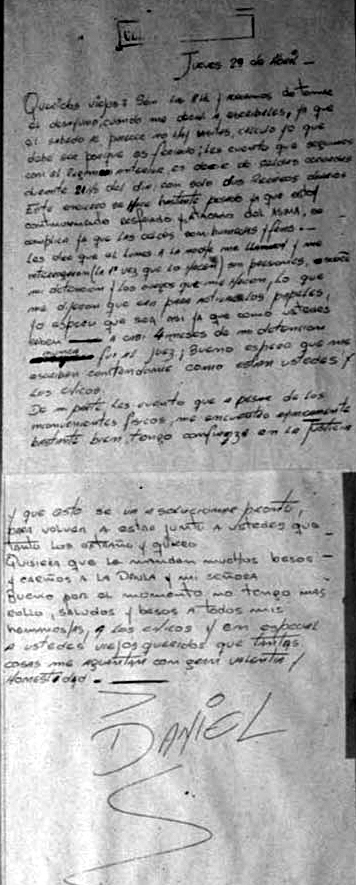 Jueves 29 de Abril -
Queridos viejos: Son las y de tomar
el desayuno, cuando me a escribirles, ya que
el sabado parece no hay visitas, calculo yo que
debe ser porque es feriado; les cuento que seguimos
con el Regimen anterior, es decir de celdas cerradas
durante 21 hs del dia, con solo dos Recreos diarios
Este encierro se hace bastante pesado ya que estoy
continuamente resfriado y Atacado del ASMA, se
complica ya que las celdas son humedas y frias. -
Les dire que el Lunes a la noche me LLamaron y me
interrogaron (la 1ª vez que lo hacen)
mi detencion y los cargos que me Hacian, lo que
me dijeron que era para activar los papeles,
yo espero que sea asi ya que como ustedes
saben a casi 4 meses de mi detencion
fui al Juez; Bueno espero que me
escriban contandome como estan ustedes y
Los chicos.
De mi parte les cuento que a pesar de los
inconvenientes fisicos, me encuentro
bastante bien, tengo confianza en la Justicia
y que esto se va a solucionar pronto,
para volver a estar junto a ustedes que
tanto los extraño y quiero
Quisiera que le manden muchos besos -
y cariños a la y mi señora
Bueno por el momento no tengo mas
rollo, saludos y besos a todos mis
hermanos/as, a los chicos y en especial
a ustedes viejos queridos que tantas
cosas me aguantan con gran valentia y
Honestidad. -
DANIEL